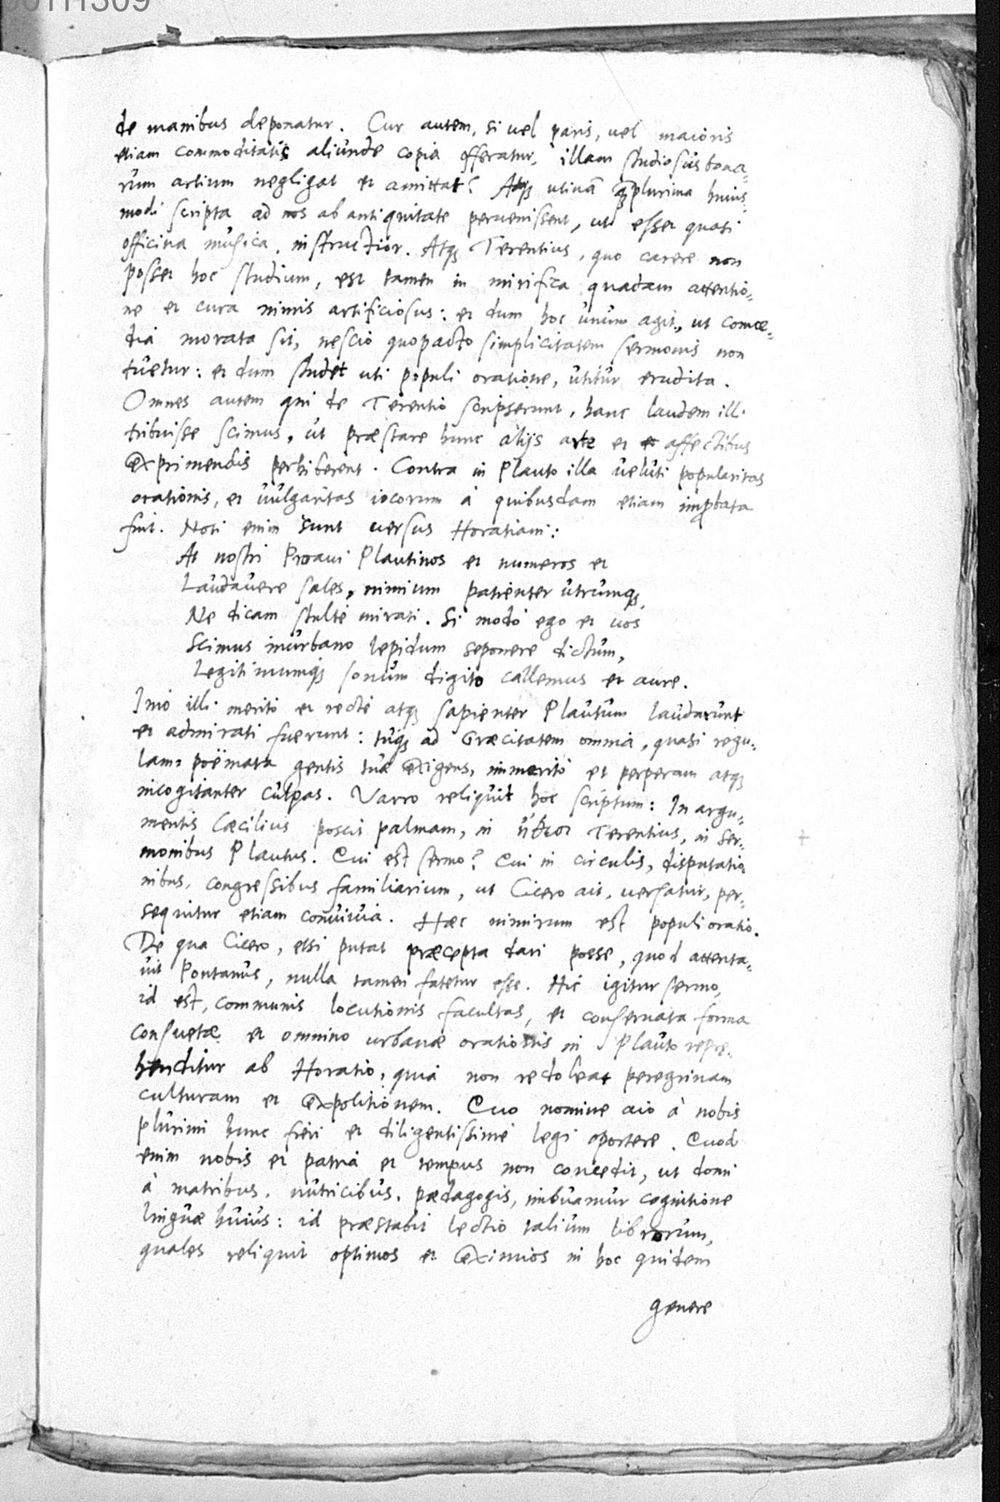 de manibus deponatur. Cur autem, si vel paris, vel maioris
etiam commoditatis aliunde copia offeratur, illam studiosus bona-
rum artium negligat et amittat? Atq; utinā q̃plurima huius-
modi scripta ad nos ab antiquitate pervenissent, ut esset quasi
officina musica instructior. Atq; Terentius, quo carere non
posset hoc studium, est tamen in mirifica quadam attentio-
ne et cura nimis artificiosus: et dum hoc unum agit, ut comoe-
dia morata sit, nescio quopacto simplicitatem sermonis non
tuetur: et dum studet uti populi oratione, utitur erudita.
Omnes autem qui de Terentio scripserunt, hanc laudem illi
tribuisse scimus, ut præstare hunc alijs arte et affectibus
exprimendis perhiberent. Contra in Plauto illa veluti popularitas
orationis, et vulgaritas iocorum à quibusdam etiam improbata
fuit. Noti enim sunt versus Horatiani:
At nostri Proavi Plautinos et numeros et
Laudavere sales, nimium patienter utrumq;
Ne dicam stultè mirati. Si modò ego et vos
Scimus inurbano lepidum seponere dictum,
Legitimumq; sonum digito callemus et aure.
Imò illi meritò et rectè atq; sapienter Plautum laudarunt
et admirati fuerunt: tuq; ad Græcitatem omnia, quasi regu-
lam, poëmata gentis tuæ exigens, immeritò et perperam atq;
incogitanter culpas. Varro reliquit hoc scriptum: In argu-
mentis Cæcilius poscit palmam, in ἤθεσι Terentius, in ser-
monibus Plautus. Qui est sermo? Qui in circulis, disputatio
nibus, congressibus familiarium, ut Cicero ait, versatur, per-
sequitur etiam convivia. Hæc nimirum est populi oratio.
De qua Cicero, etsi putat præcepta dari posse, quod attenta-
vit Pontanus, nulla tamen fatetur esse. Hic igitur sermo,
id est, communis locutionis facultas, et conservata forma
consuetæ et omnino urbanæ orationis in Plauto repre-
henditur ab Horatio, quia non redoleat peregrinam
culturam et expolitionem. Quo nomine aio à nobis
plurimi hunc fieri et diligentissimè legi oportere. Quod
enim nobis et patria et tempus non concedit, ut domi
à matribus, nutricibus, pædagogis, imbuamur cognitione
linguæ huius: id præstabit lectio talium librorum,
quales reliquit optimos et eximios in hoc quidem
genere